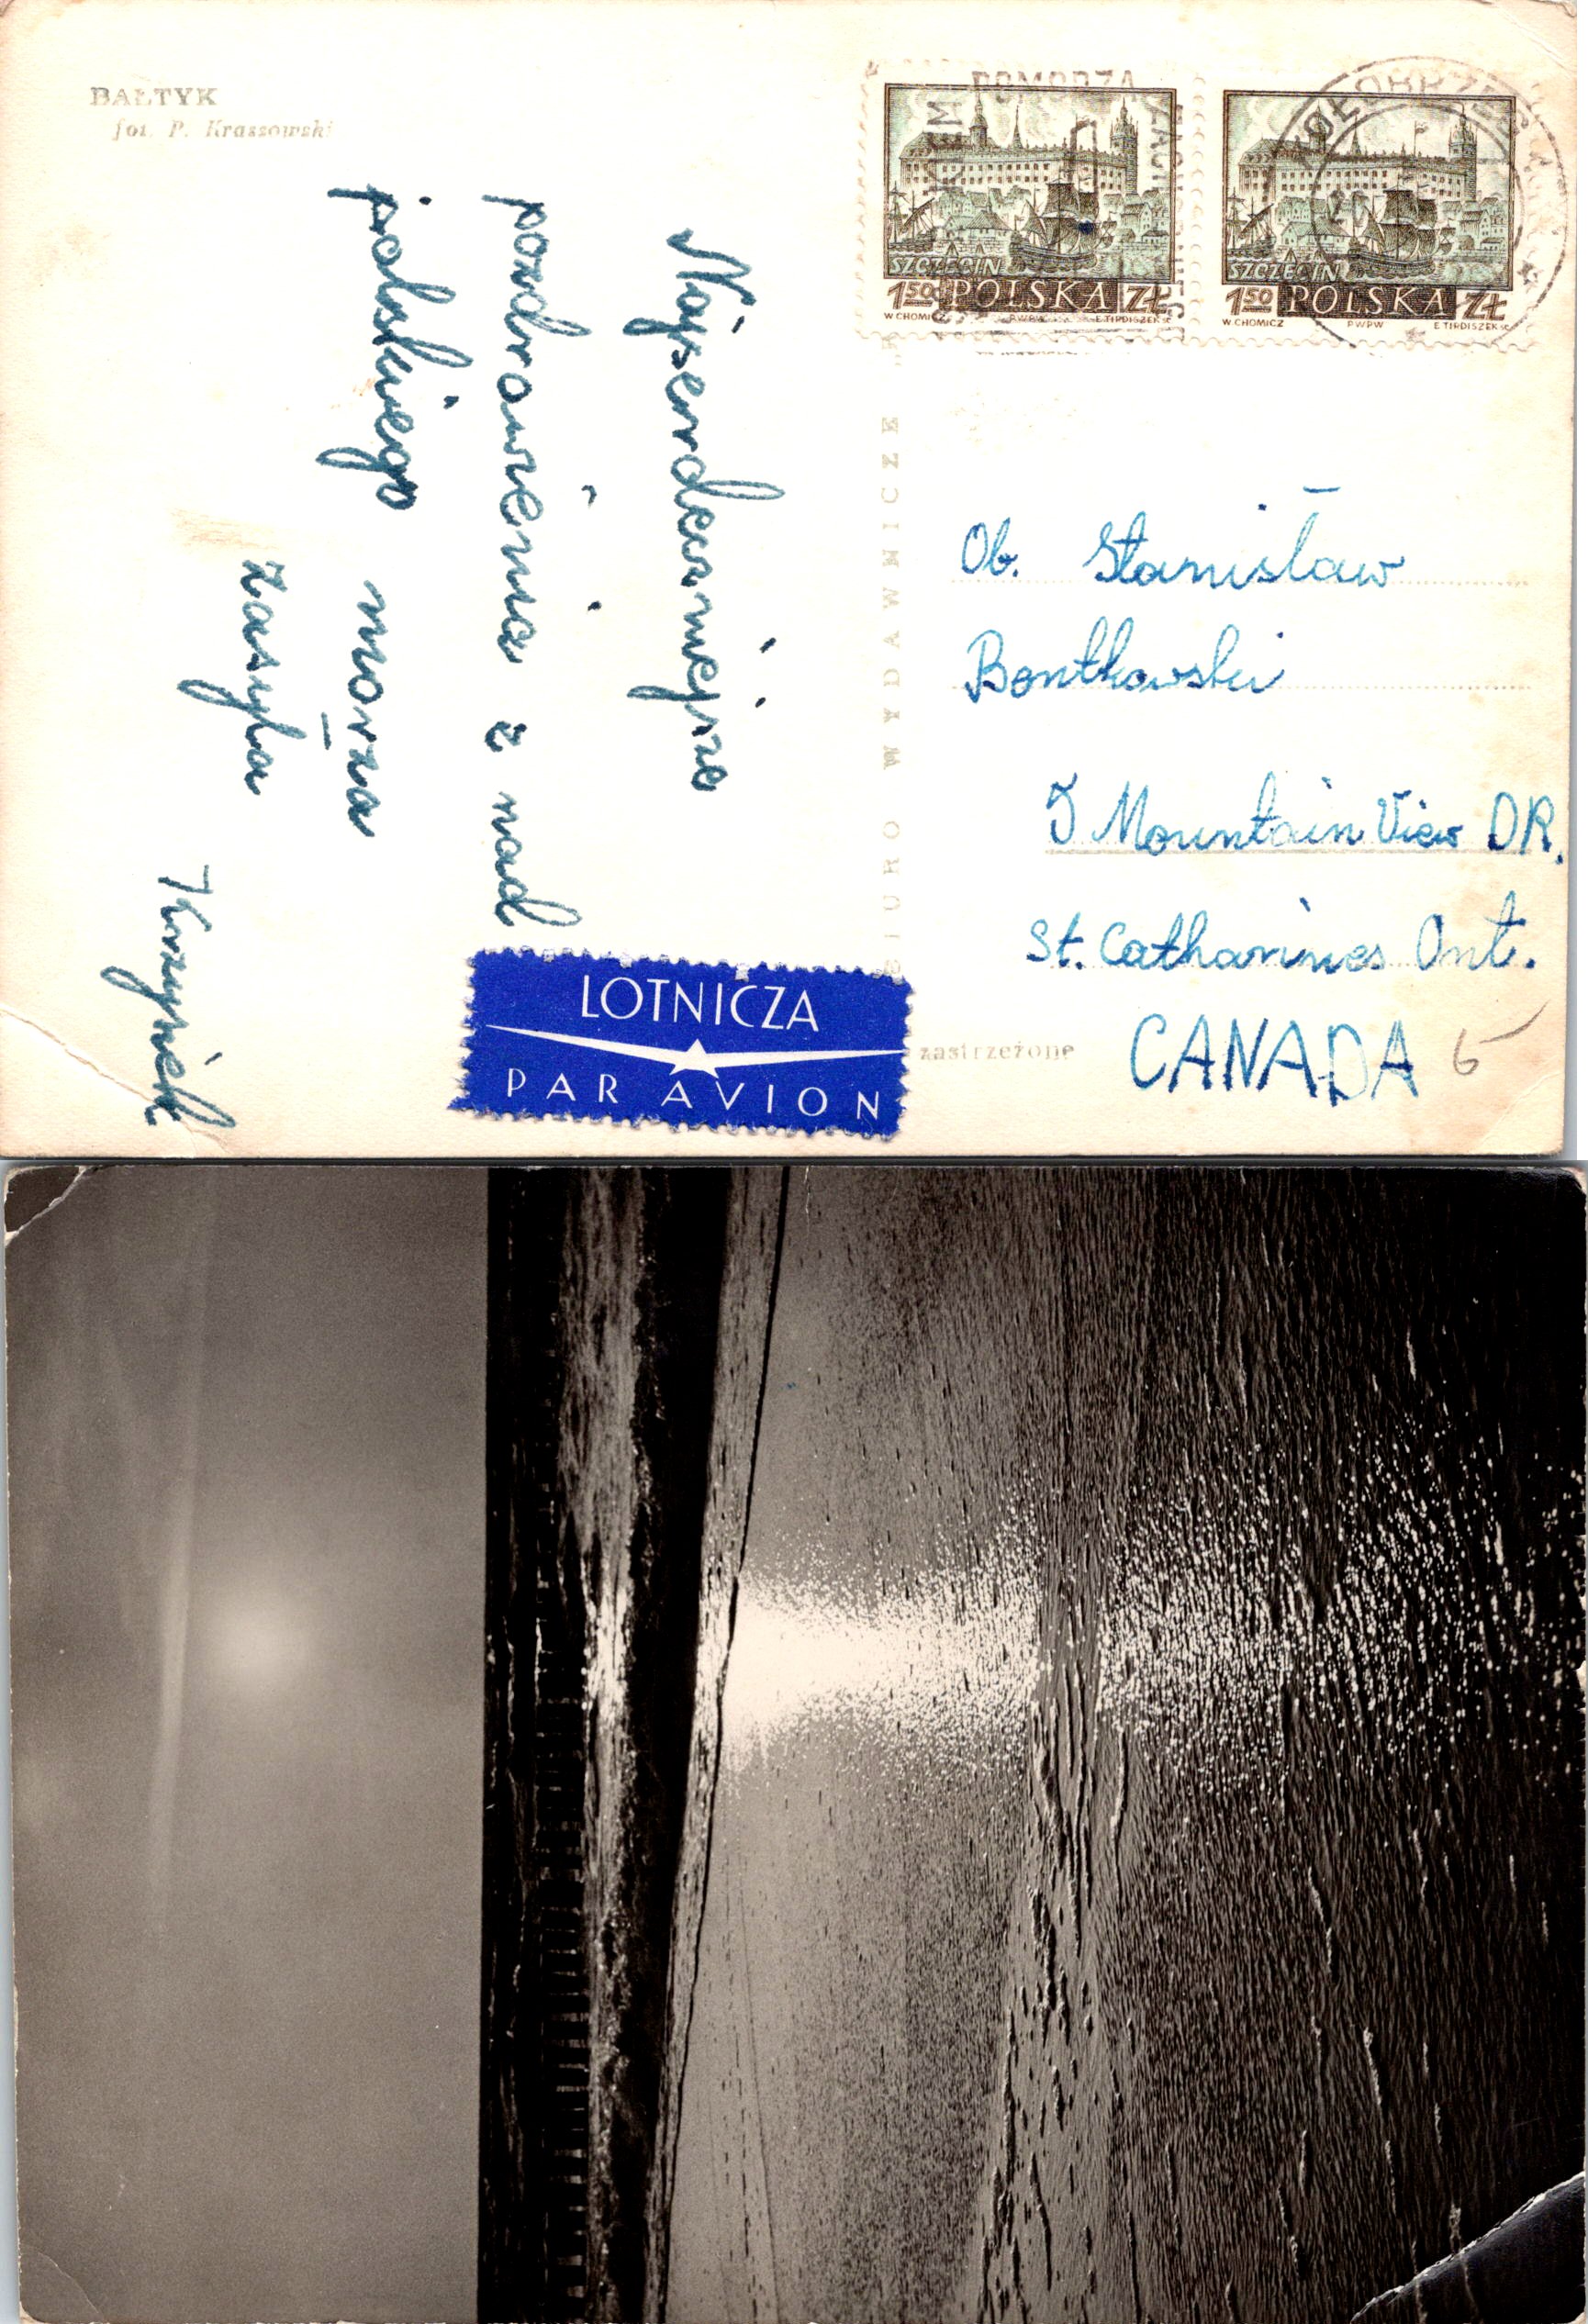 BAŁTYK
fot. P. Krassowski
Najserdeczniejsze
pozdrowienia z nad
polskiego morza
zasyła
Krzysiek
POMORZA
KOŁOBRZEG
SZCZECIN
150 POLSKA ZŁ
W.CHOMICZ PWPW E.TIRDISZEK sc.
SZCZECIN
150 POLSKA ZŁ
W.CHOMICZ PWPW E.TIRDISZEK sc.
BIURO WYDAWNICZE
Ob. Stanisław
Bontkowski
5 Mountain View DR.
St. Catharines Ont.
CANADA 6
LOTNICZA
PAR AVION
zastrzeżone